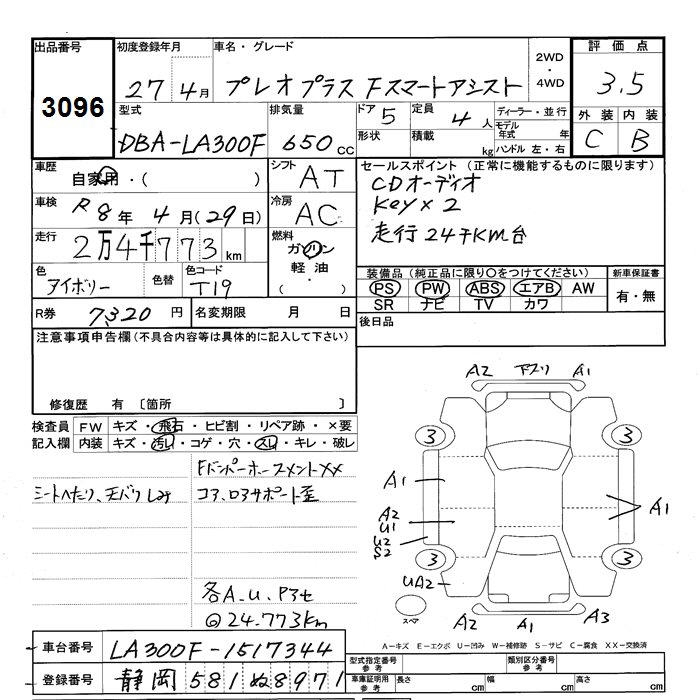 出品番号 3096
初度登録年月 27年4月
車名・グレード プレオプラス Fスマートアシスト
2WD・4WD
評価点 3.5
外装 C 内装 B
型式 DBA-LA300F
排気量 650 cc
ドア 5
形状
定員 4人
積載 kg
ディーラー・並行
モデル年式 年
ハンドル 左・右
車歴 自家用・( )
シフト AT
車検 R8年4月(29日)
冷房 AC
走行 2万4千773km
燃料 ガソリン 軽油・( )
色 アイボリー
色替
色コード T19
R券 7,320円
名変期限 月 日
セールスポイント(正常に機能するものに限ります)
CDオーディオ
Key×2
走行24千KM台
装備品(純正品に限り○をつけてください)
PS PW ABS エアB AW
SR ナビ TV カワ
新車保証書 有・無
後日品
注意事項申告欄(不具合内容等は具体的に記入して下さい)
修復歴 有 〔箇所 〕
検査員記入欄
FW キズ・飛石・ヒビ割・リペア跡・×要
内装 キズ・汚れ・コゲ・穴・スレ・キレ・破レ
シートへたり、天バリしみ
FバンパーホースメントXX
コア、ロアサポート歪
各A、U、P3セ
◎24,773km
A2 下スリ A1
3 3
A1
A2
U1
U2
S2
A1
3 3
UA2
スペア
A2 A1 A3
A-キズ E-エクボ U-凹み W-補修跡 S-サビ C-腐食 XX-交換済
車台番号 LA300F-1517344
登録番号 静岡 581 ぬ 8971
型式指定番号 参考
類別区分番号 参考
車庫証明用 参考
長さ cm 幅 cm 高さ cm